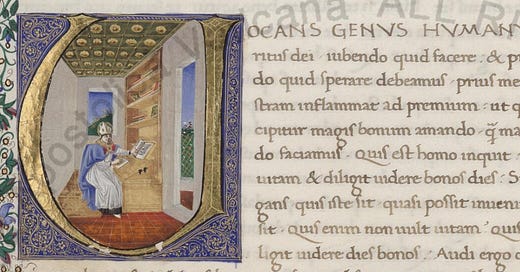 VOCANS GENVS HVMAN
ritus dei · iubendo quid facere · & pr
do quid sperare debeamus · prius me
stram inflammat ad premium · ut q
cipitur magis bonum amando · q̄ ma
do faciamus · Quis est homo inquit ·
uitam & diligit uidere bonos dies · S
gans quis iste sit · quasi possit inueni
sit · quis enim non uult uitam · quis
ligit uidere dies bonos · Audi ergo
ALL R